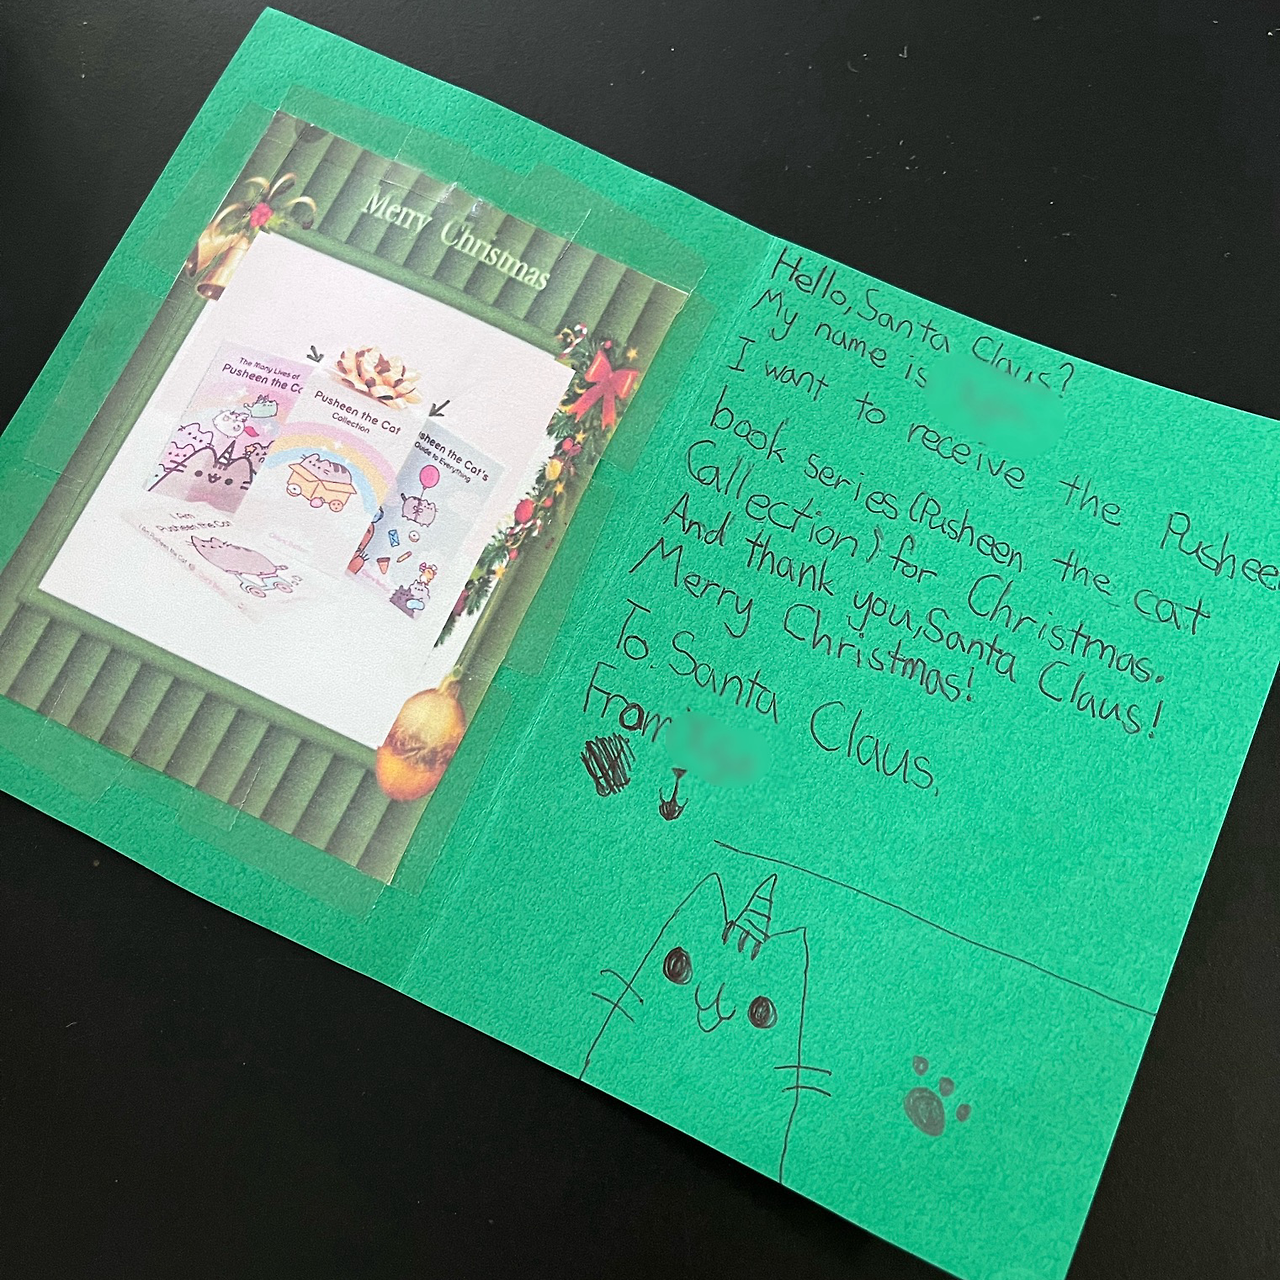 Merry Christmas
The Many Lives of
Pusheen the Ca
Pusheen the Cat
Collection
sheen the Cat's
Guide to Everything
I Am
Pusheen the Cat
I Am Pusheen the Cat
Hello, Santa Claus?
My name is
I want to receive the Pushee
book series (Pusheen the cat
Callection) for Christmas.
And thank you, Santa Claus!
Merry Christmas!
To. Santa Claus.
From